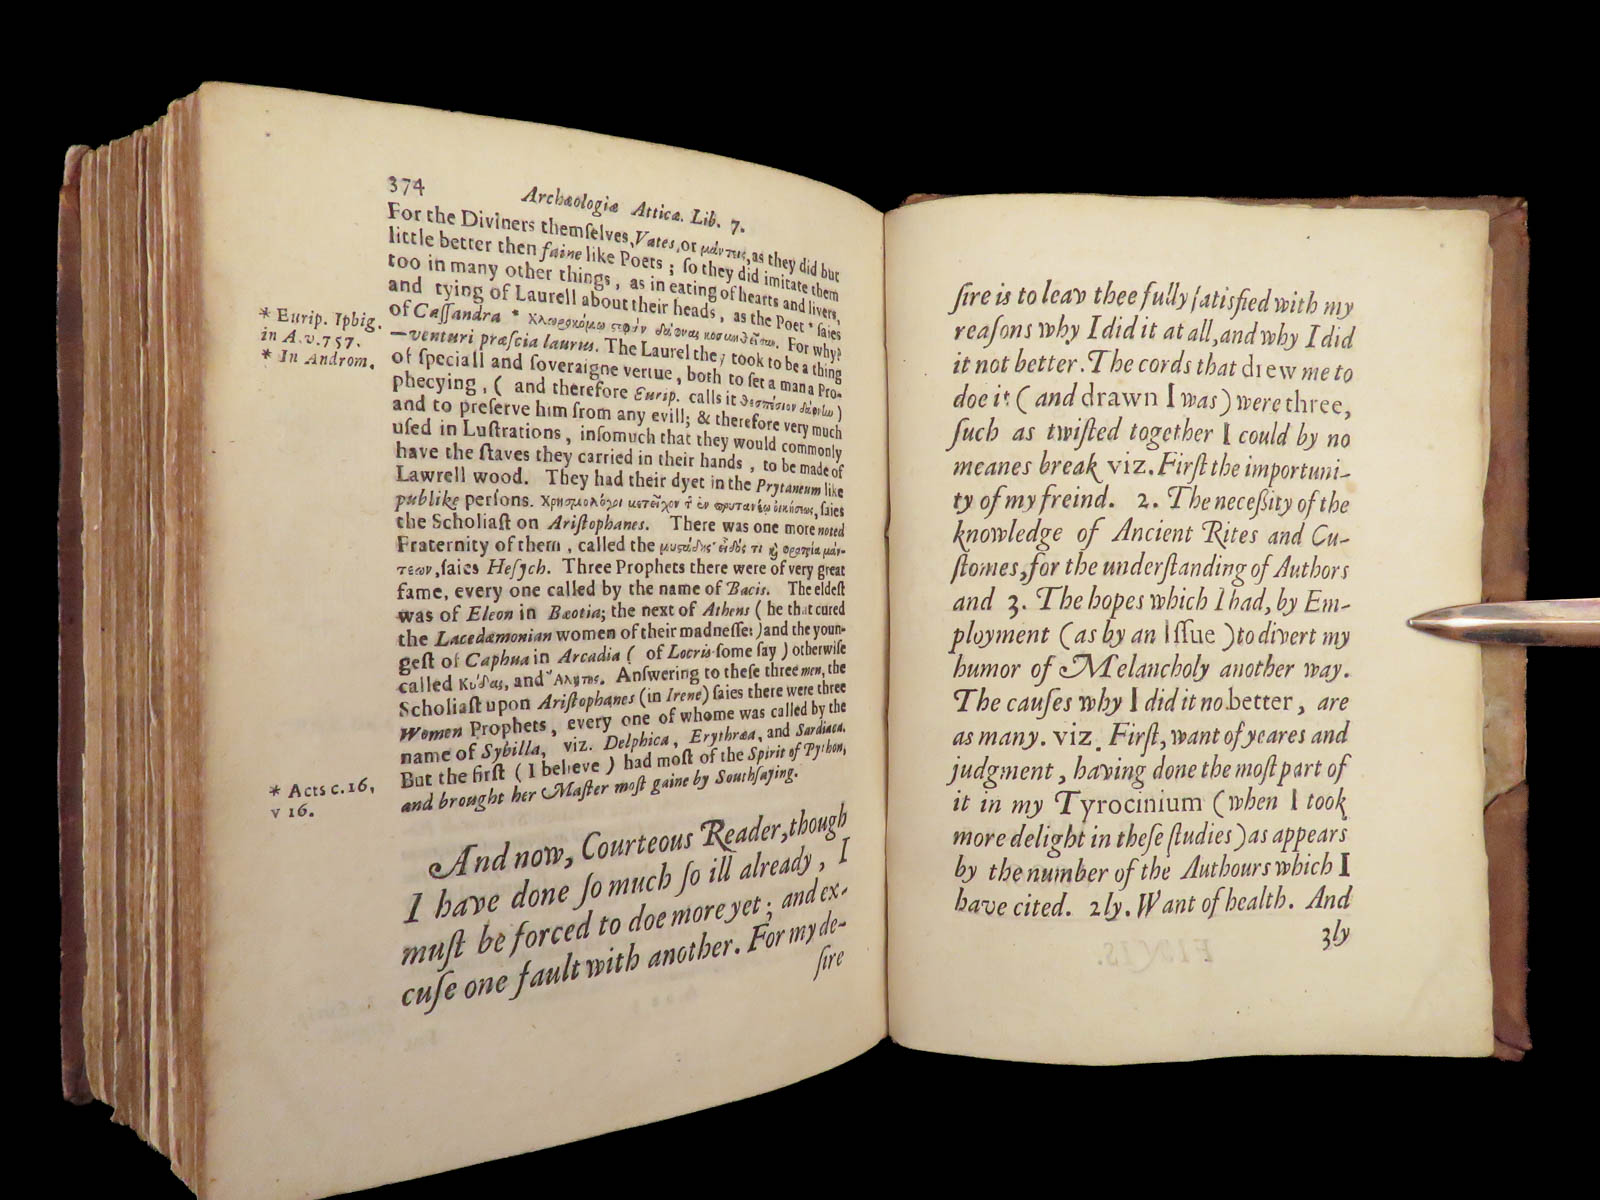 374
Archæologiæ Atticæ. Lib. 7.
For the Diviners themſelves, Vates, or μάντεις, as they did but
little better then faine like Poets ; ſo they did imitate them
too in many other things , as in eating of hearts and livers,
and tying of Laurell about their heads , as the Poet * ſaies
of Caſſandra *
. For why?
—venturi præſcia laurus. The Laurel they took to be a thing
of ſpeciall and ſoveraigne vertue , both to ſet a man a Pro-
phecying , ( and therefore Eurip. calls it
)
and to preſerve him from any evill; & therefore very much
uſed in Luſtrations , inſomuch that they would commonly
have the ſtaves they carried in their hands , to be made of
Lawrell wood. They had their dyet in the Prytaneum like
publike perſons. Χρησμολόγοι
, ſaies
the Scholiaſt on Ariſtophanes. There was one more noted
Fraternity of them , called the
μάν-
τεων, ſaies Heſych. Three Prophets there were of very great
fame, every one called by the name of Bacis. The eldeſt
was of Eleon in Bæotia; the next of Athens ( he that cured
the Lacedæmonian women of their madneſſe: ) and the youn-
geſt of Caphua in Arcadia ( of Locris ſome ſay ) otherwiſe
called Κύδας, and Αλήτης. Anſwering to theſe three men, the
Scholiaſt upon Ariſtophanes (in Irene) ſaies there were three
Women Prophets , every one of whome was called by the
name of Sybilla, viz. Delphica, Erythræa, and Sardiaca.
But the firſt ( I believe ) had moſt of the Spirit of Python,
and brought her Maſter moſt gaine by Southſaying.
* Eurip. Iphig.
in A.v.757.
* In Androm.
* Acts c.16,
v 16.
And now, Courteous Reader, though
I have done ſo much ſo ill already , I
muſt be forced to doe more yet ; and ex-
cuſe one fault with another. For my de-
ſire
ſire is to leav thee fully ſatisfied with my
reaſons why I did it at all, and why I did
it not better. The cords that drew me to
doe it ( and drawn I was ) were three,
ſuch as twiſted together I could by no
meanes break viz. Firſt the importuni-
ty of my freind. 2. The neceſſity of the
knowledge of Ancient Rites and Cu-
ſtomes, for the underſtanding of Authors
and 3. The hopes which I had, by Em-
ployment (as by an Iſſue ) to divert my
humor of Melancholy another way.
The cauſes why I did it no better , are
as many. viz. Firſt, want of yeares and
judgment , having done the moſt part of
it in my Tyrocinium (when I took
more delight in theſe ſtudies) as appears
by the number of the Authours which I
have cited. 2ly. Want of health. And
3ly